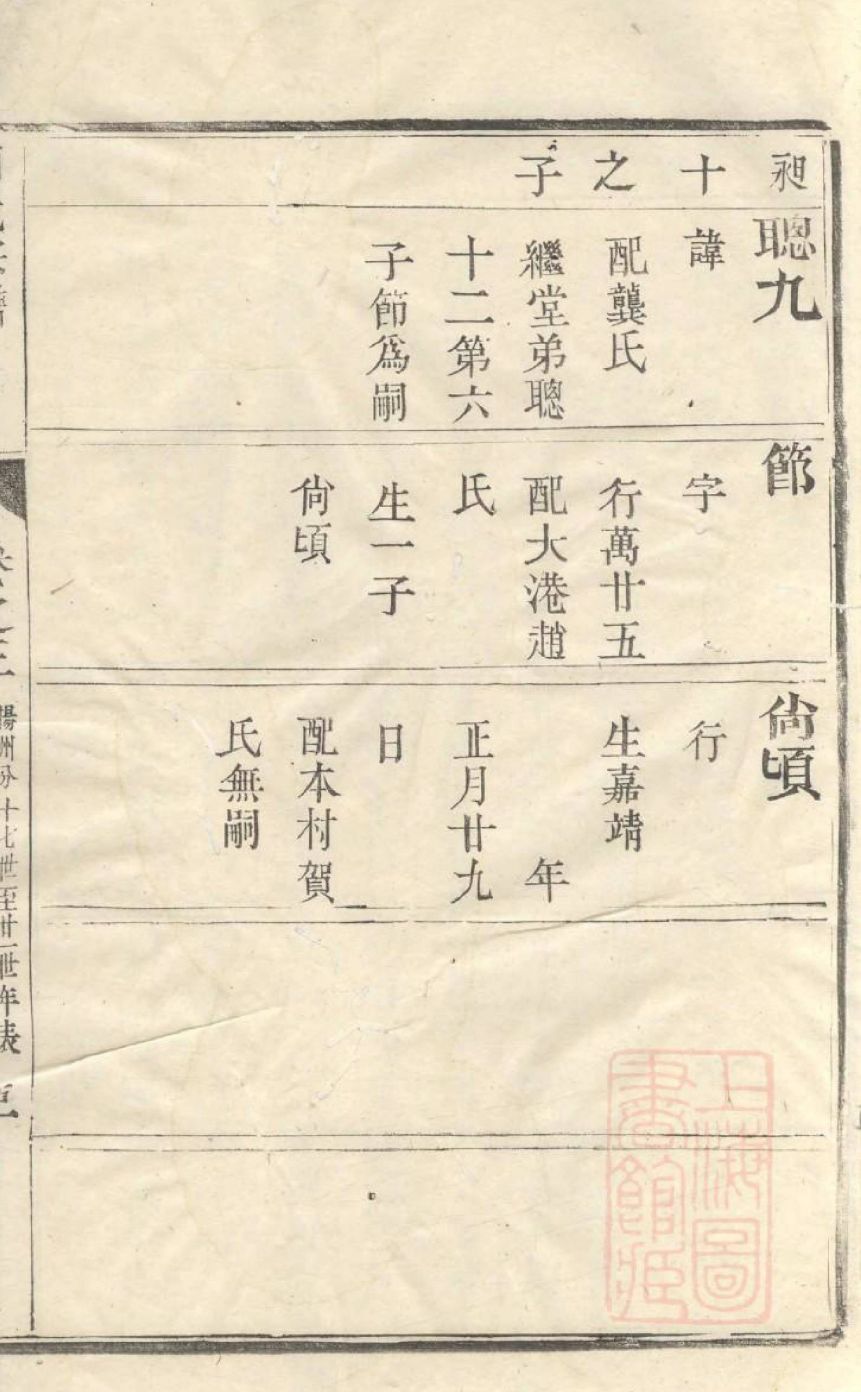 昶
十
之
子
聰九
諱
配龔氏
繼堂弟聰
十二第六
子節爲嗣
節
字
行萬廿五
配大港趙
氏
生一子
尙頃
尙頃
行
生嘉靖
年
正月廿九
日
配本村賀
氏無嗣
卷之三
揚州分十七世至廿一世年表
上海圖
書館藏